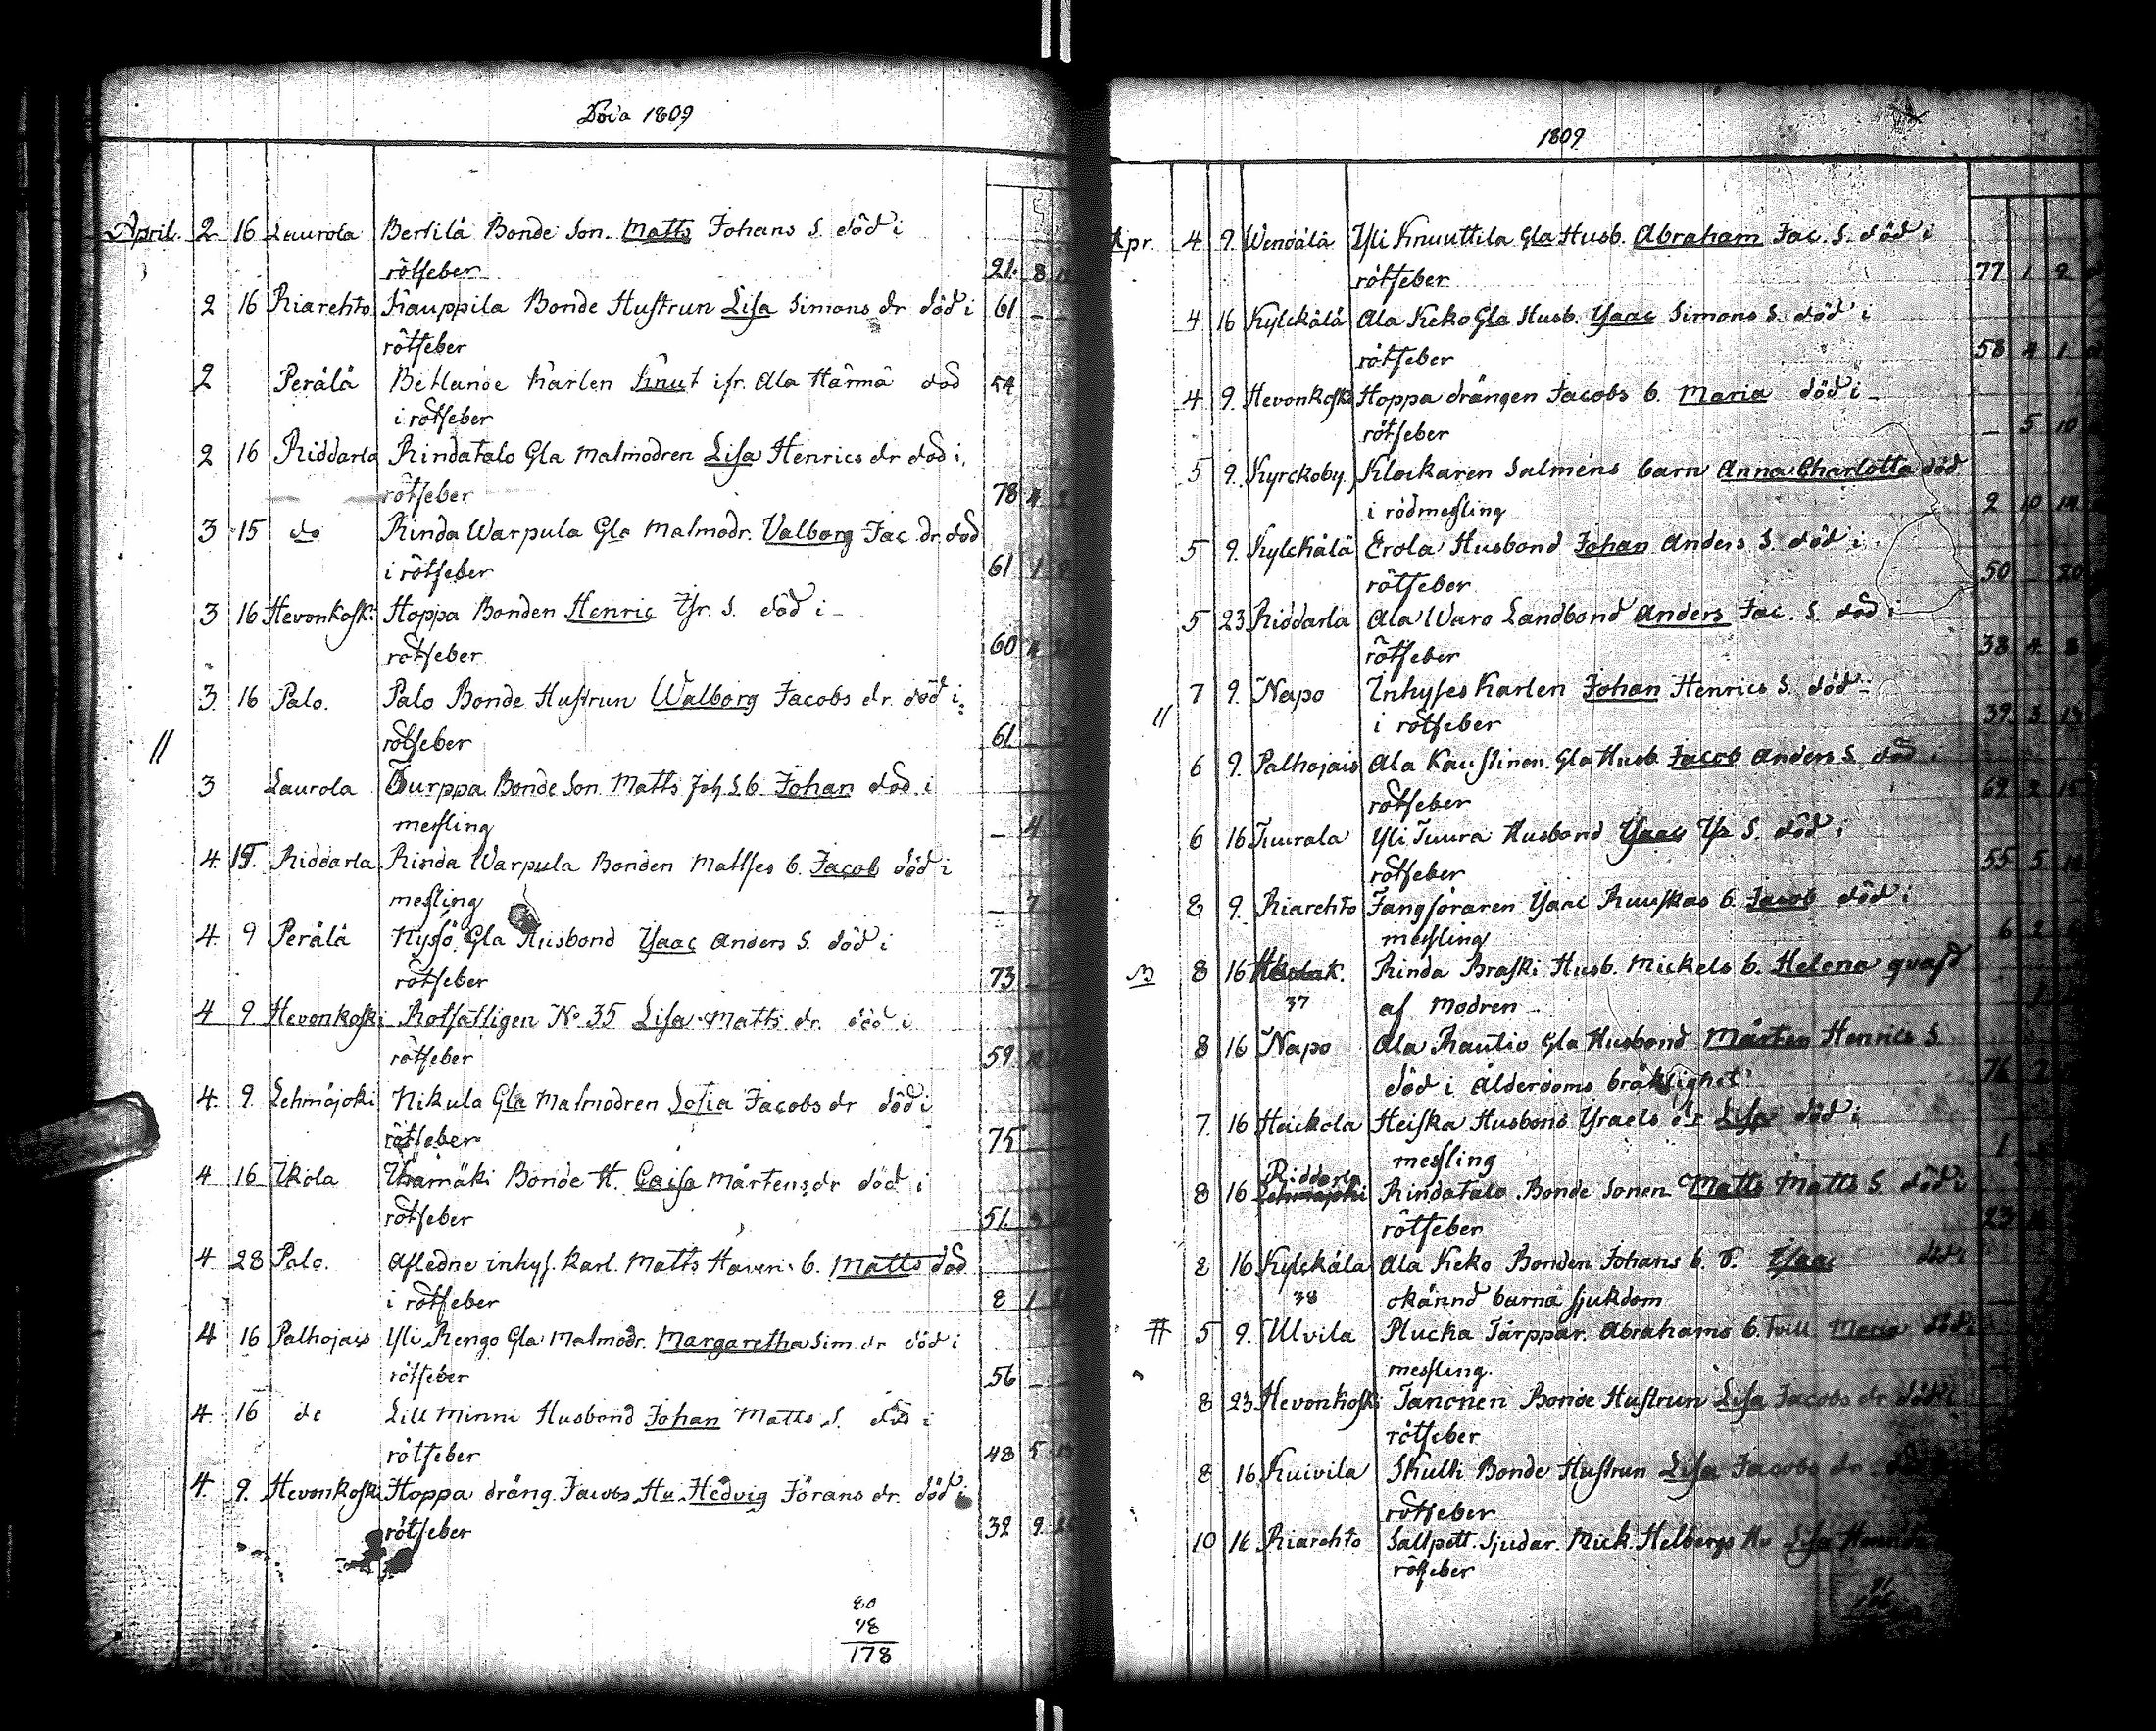 Döda 1809
April. 2 16 Laurola Bertilä Bonde Son. Matts Johans S. död i
rötfeber 21. 8
2 16 Kiarehto Kauppila Bonde Hustrun Lisa Simons dr död i 61 _ _
rötfeber
2 Perälä Betlande Karlen Knut ifr. Ala Härmä död 54
i rötfeber
2 16 Riddarla Rindatalo Gla Matmodren Lisa Henrics dr död i
rötfeber 78 4 2
3 15 do Rinda Warpula Gla Matmodr. Valborg Jac. dr. död
i rötfeber 61 1
3 16 Hevonkoski Hoppa Bonden Henric Ysr. S. död i
rötfeber 60 4
3 16 Palo. Palo Bonde Hustrun Walborg Jacobs dr. död i
rötfeber 61 _
// 3 Laurola Turppa Bonde Son Matts Joh. S. b Johan död i
messling _ 4
4. 15. Riddarla. Rinda Warpula Bonden Mattses b. Jacob död i
messling _ 7
4. 9 Perälä Nyssö Gla Husbond Ysaac Anders S. död i
rötfeber 73 _
4 9 Hevonkoski Rotfattigen No 35 Lisa Matts dr. död i
rötfeber 59.
4. 9. Lehmäjoki Nikula Gla Matmodren Sofia Jacobs dr död i
rötfeber 75 _
4 16 Ikola Bonde H. Caisa Mårtens dr död i
rötfeber 51.
4 28 Palo. Afledne inhys. Karl. Matts b. Matts död
i rötfeber 8 1
4 16 Palhojais Yli Rengo Gla Matmodr. Margaretha Sim. dr död i
rötfeber 56 _ _
4. 16 do Lill Minni Husbond Johan Matts S. död i
rötfeber 48 5
4. 9. Hevonkoski Hoppa dräng. Jacobs Hu Hedvig Jörans dr. död i
rötfeber 32 9
80
98
178
1809
Apr. 4 9. Wendälä Yli Knuuttila Gla Husb. Abraham Jac. S. död i
rötfeber 77 1 2
4 16 Kylckälä Ala Keko Gla Husb. Ysaac Simons S. död i
rötfeber 58 4 1
4 9. Hevonkoski Hoppa drängen Jacobs b. Maria död i
rötfeber _ 5 10
5 9. Kyrckoby Klockaren Salmens barn Anna Charlotta död
i rödmessling 2 10 14
5 9. Kylckälä Erola Husbond Johan Anders S. död i
rötfeber 50 _ 20
5 23 Riddarla Ala Waro Landbond Anders Jac. S. död i
rötfeber 38 4 8
// 7 9. Napo Inhyses Karlen Johan Henrics S. död
i rötfeber 39 3
6 9. Palhojais Ala Kaustinen. Gla Husb. Jacob Anders S. död i
rötfeber 69 2 15
6 16 Tuurala Yli Tuura Husbond Ysaac Ys S. död i
rötfeber 55 5
8 9. Kiarehto Fangföraren Ysaac Ruuskas b. Jacob död i
messling 6 2
8 16 Rinda Braski Husb. Mickels b. Helena qvafd
37 af Modren
8 16 Napo Ala Rautio Gla Husbond Mårten Henrics S.
död i Ålderdoms bräklighet 76
7 16 Heickola Heiska Husbond Ysraels dr Lisa död i
messling 1
Riddarla
8 16 Lehmäjoki Rindatalo Bonde Sonen Matts Matts S. död i
rötfeber 23
8 16 Kylckälä Ala Keko Bonden Johans b. Ysaac död i
38 okännd barna sjukdom
# 5 9. Ulvila Plucka Tärppar. Abrahams b. Tvill Maria död i
messling.
8 23 Hevonkoski Bonde Hustrun Lisa Jacobs dr död i
rötfeber
8 16 Kuivila Skulti Bonde Hustrun Lisa Jacobs dr död
rötfeber
10 16 Kiarehto Sallpett. Sjudar. Mick. Helbergs Hu Lisa
rötfeber